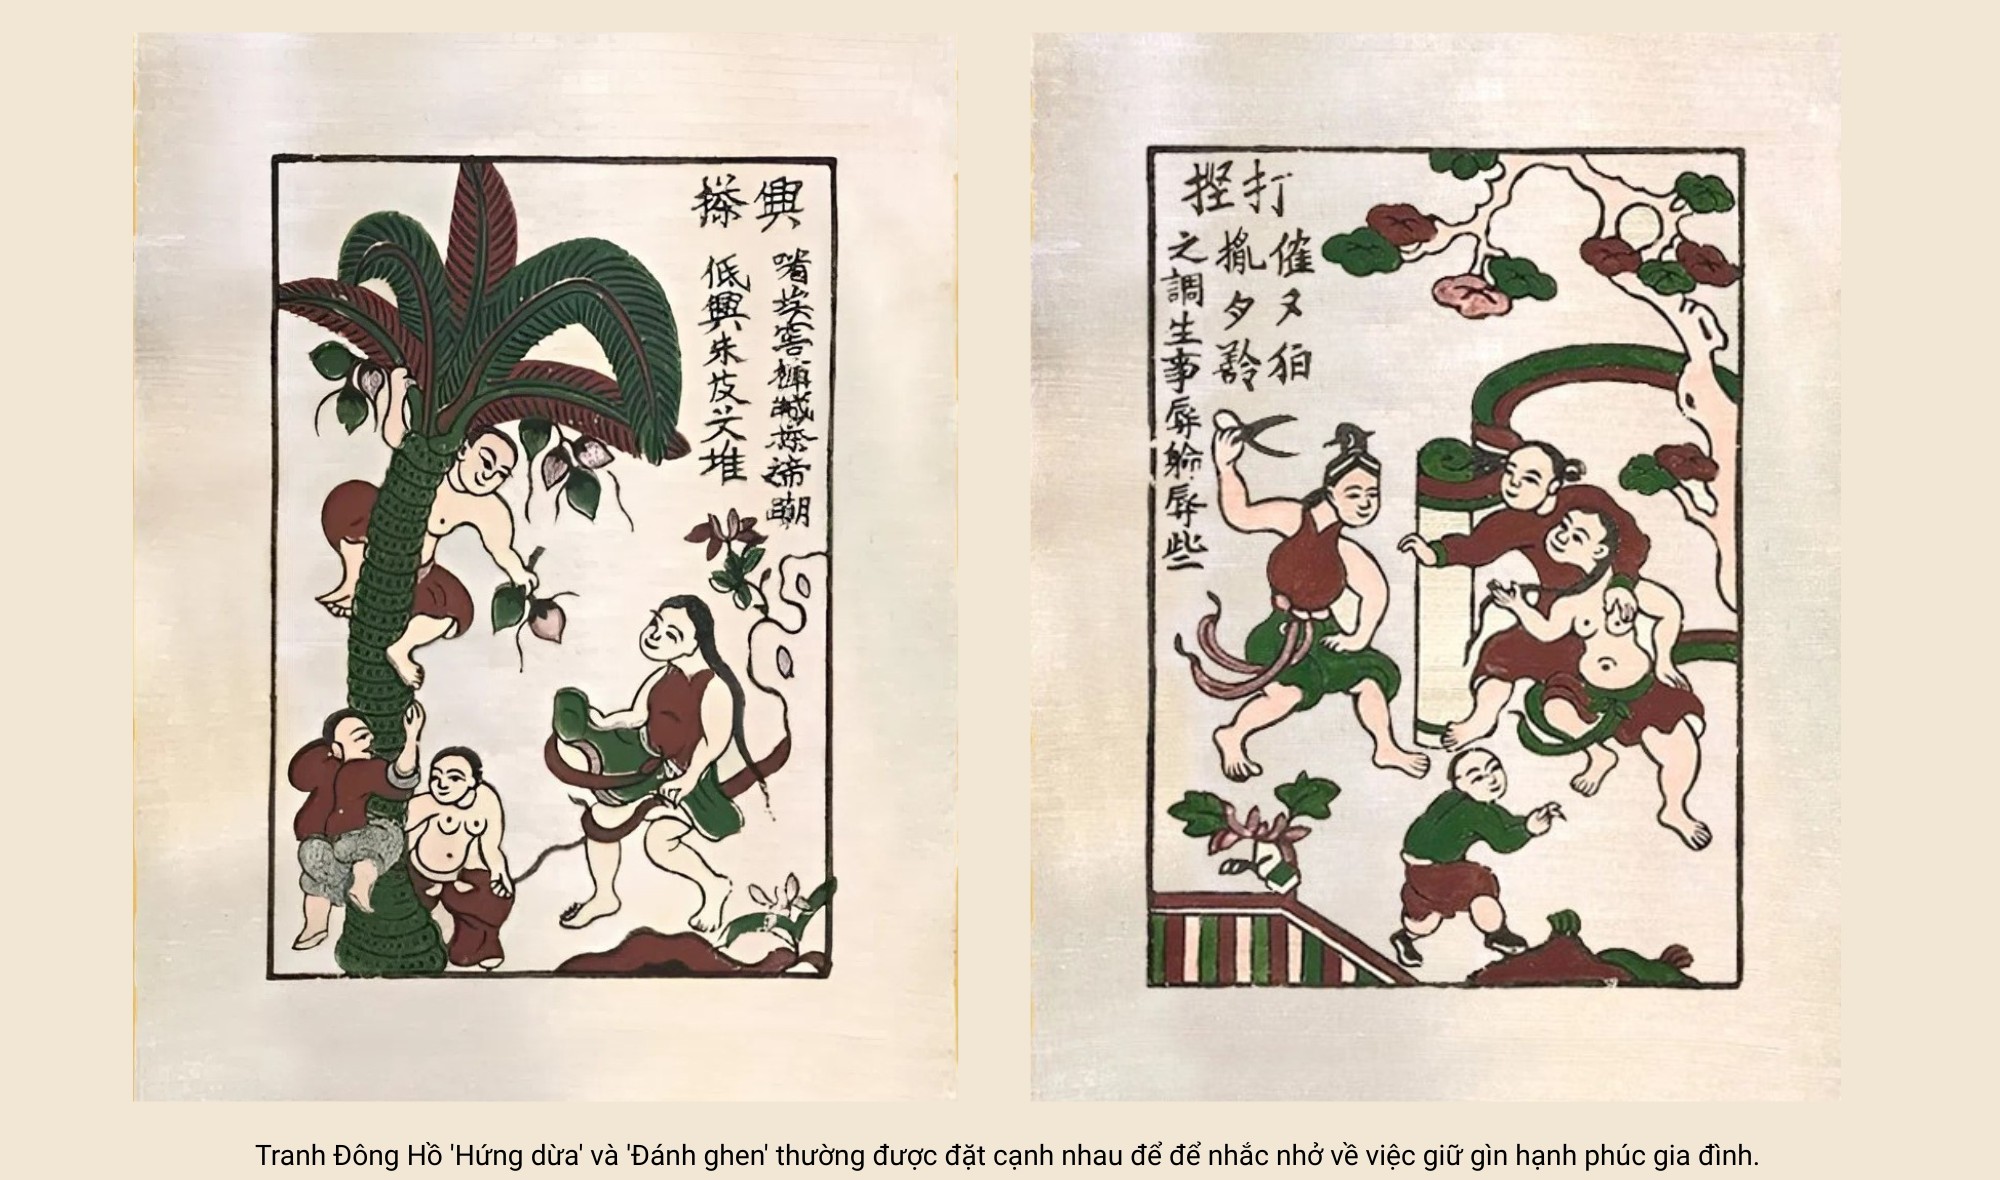 興㮛
喈埃窖𢲫城㮛啼嘲
低興朱皮父堆
打揑
催又伯搋夕鈴
之調生事辱𨉓辱些
Tranh Đông Hồ 'Hứng dừa' và 'Đánh ghen' thường được đặt cạnh nhau để để nhắc nhở về việc giữ gìn hạnh phúc gia đình.